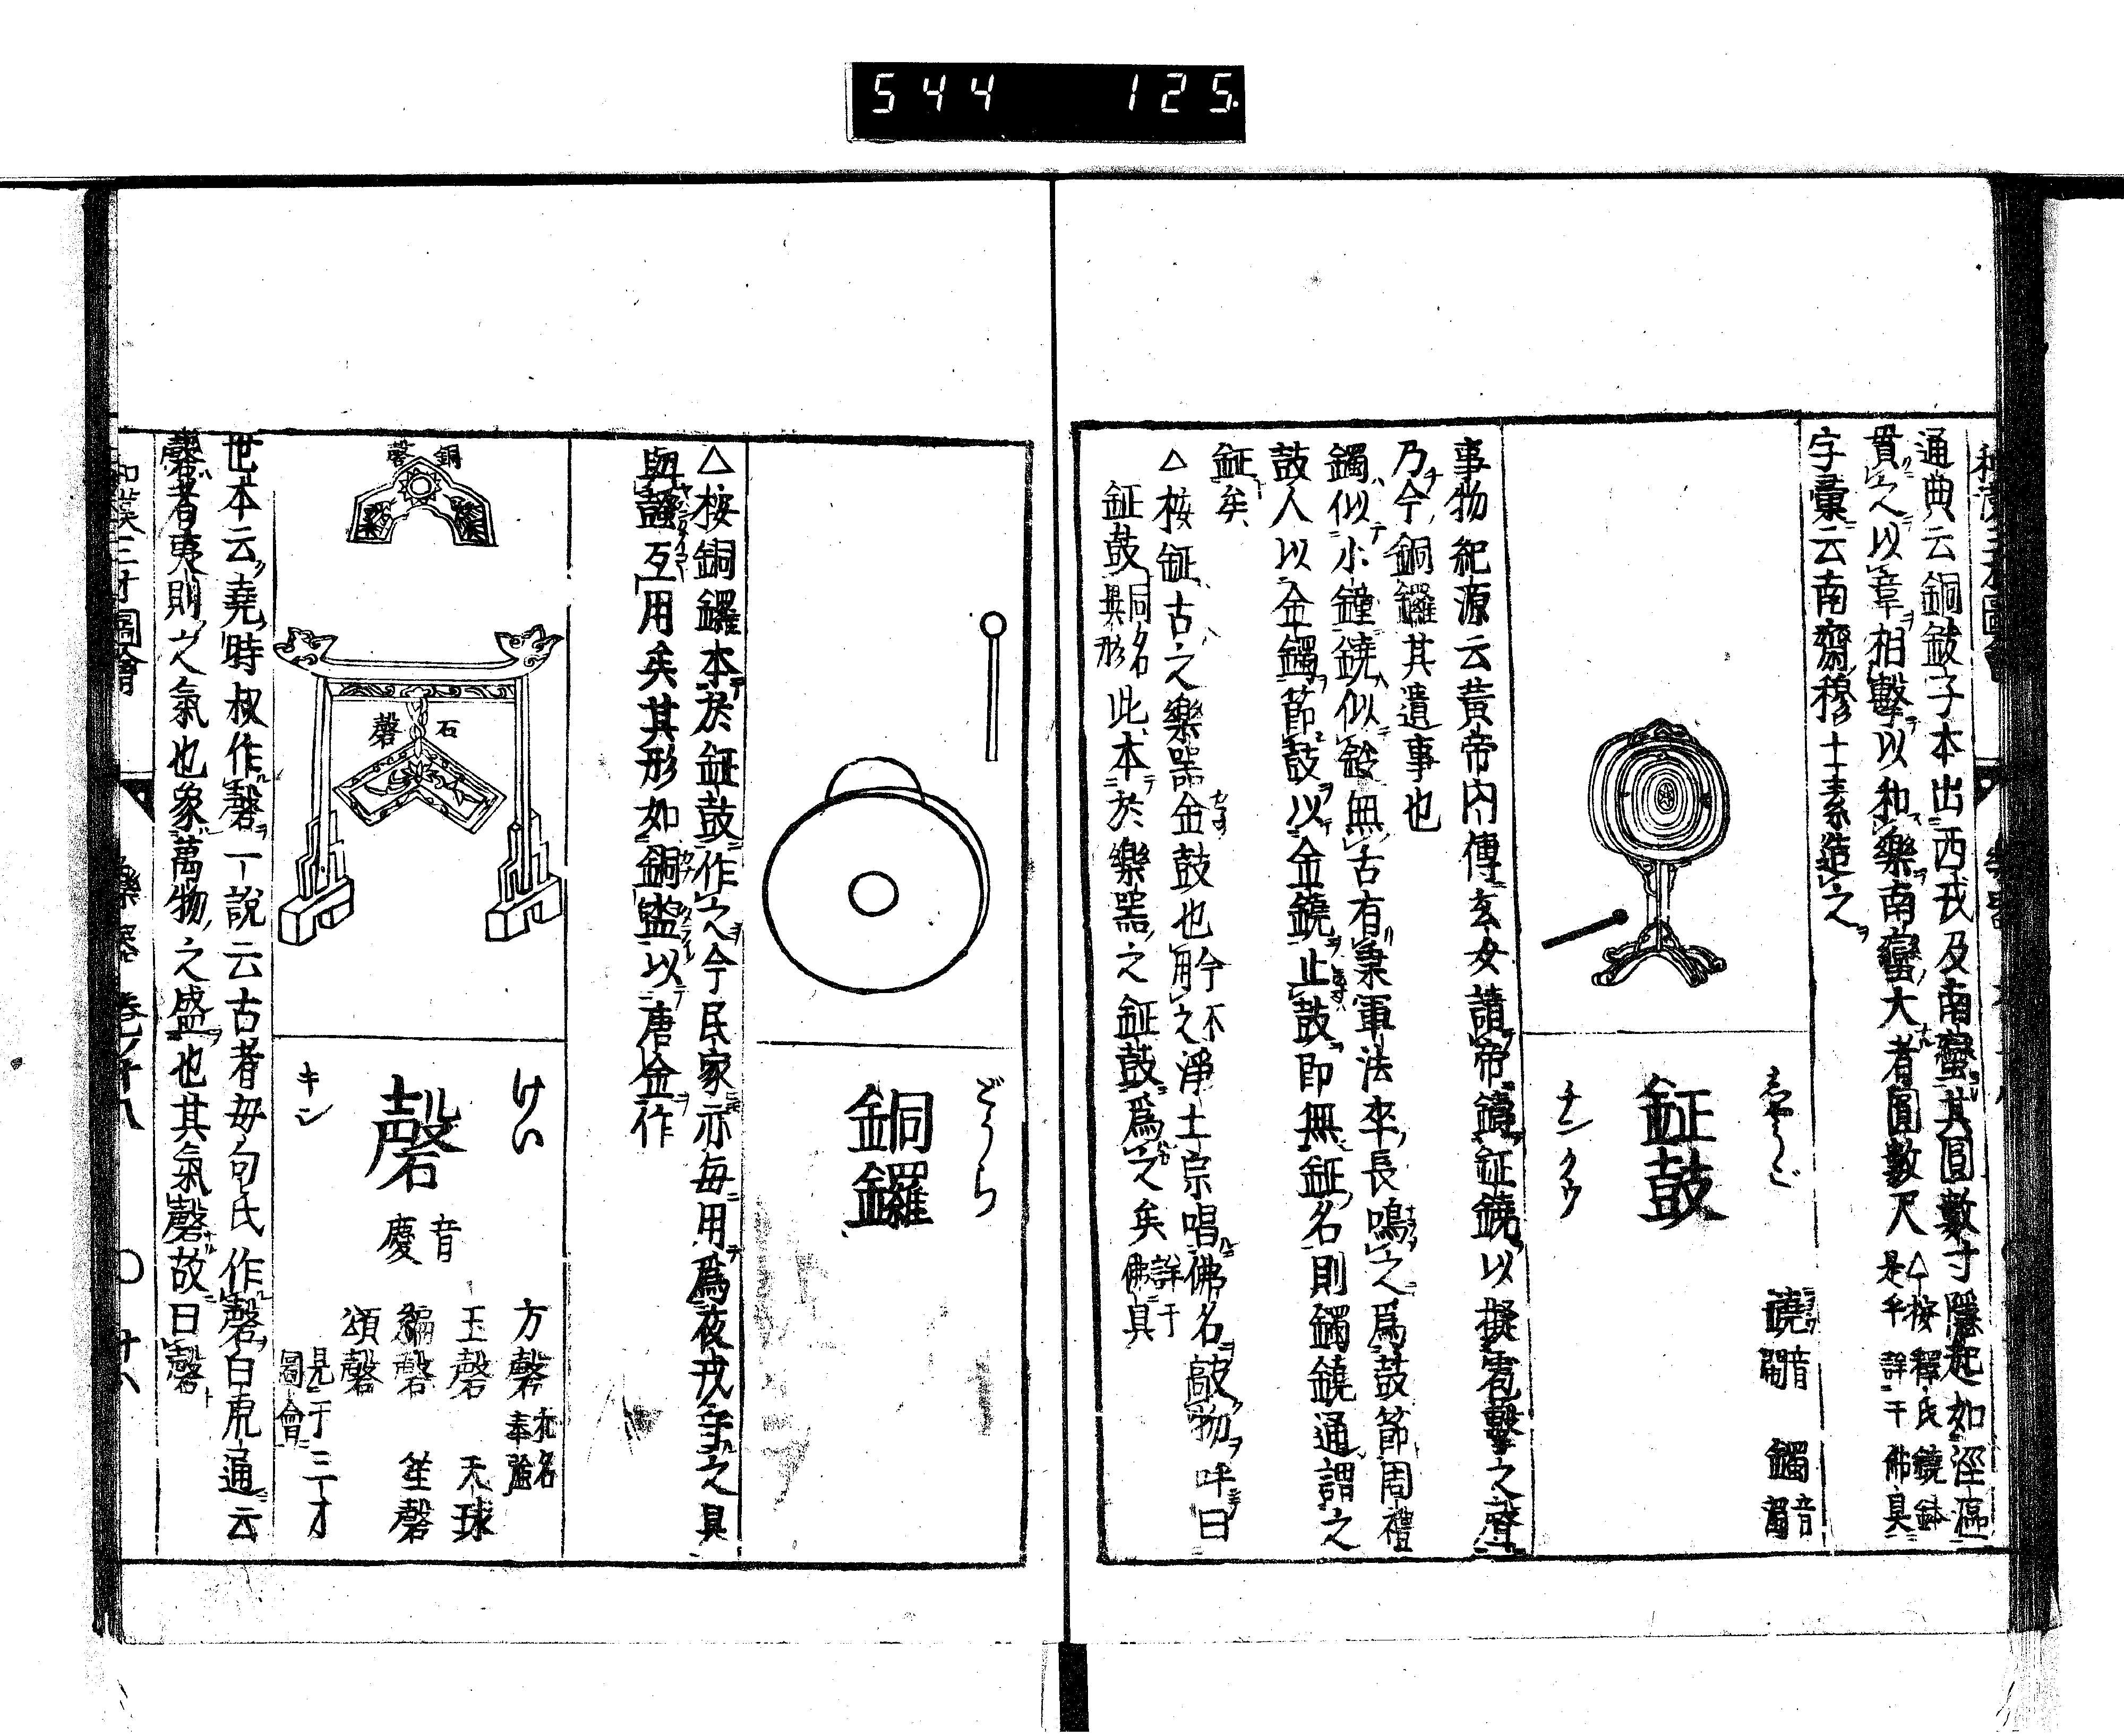 544 125
通典云銅鈸子本出西戎及南蠻其圓數寸隱起如浮漚
貫之以韋相擊以和樂南蠻大者圓數尺
△按釋氏鐃鉢
是乎詳于佛具
字彙云南齋穆士素造之
しやうご
鉦鼓
チン クウ
鐃 音閙
鐲 音濁
事物紀源云黃帝內傳玄女請帝鑄鉦鐃以擬雹擊之聲
乃今銅鑼其遺事也
鐲似小鐘鐃似鈴無舌有秉軍法卒長鳴之爲鼓節周禮
鼓人以金鐲節鼓以金鐃止鼓即無鉦名則鐲鐃通謂之
鉦矣
△按鉦古之樂器金鼓也今不用之淨土宗唱佛名敲物呼曰
鉦鼓同名異形此本於樂器之鉦鼓爲之矣詳于佛具
どうら
銅鑼
△按銅鑼本於鉦鼓作之今民家亦毎用爲夜戎守之具
與互用矣其形如銅盥以唐金作
銅磬
石磬
けい
磬
キン
音慶
方磬
玉磬 天球
編磬 笙磬
頌磬
見于三才
圖會
世本云堯時叔作磬一說云古者毋句氏作磬白虎通云
磬者夷則之氣也象萬物之盛也其氣磬故曰磬
和漢三才圖會 樂器 卷ノ十八 〇 廿八